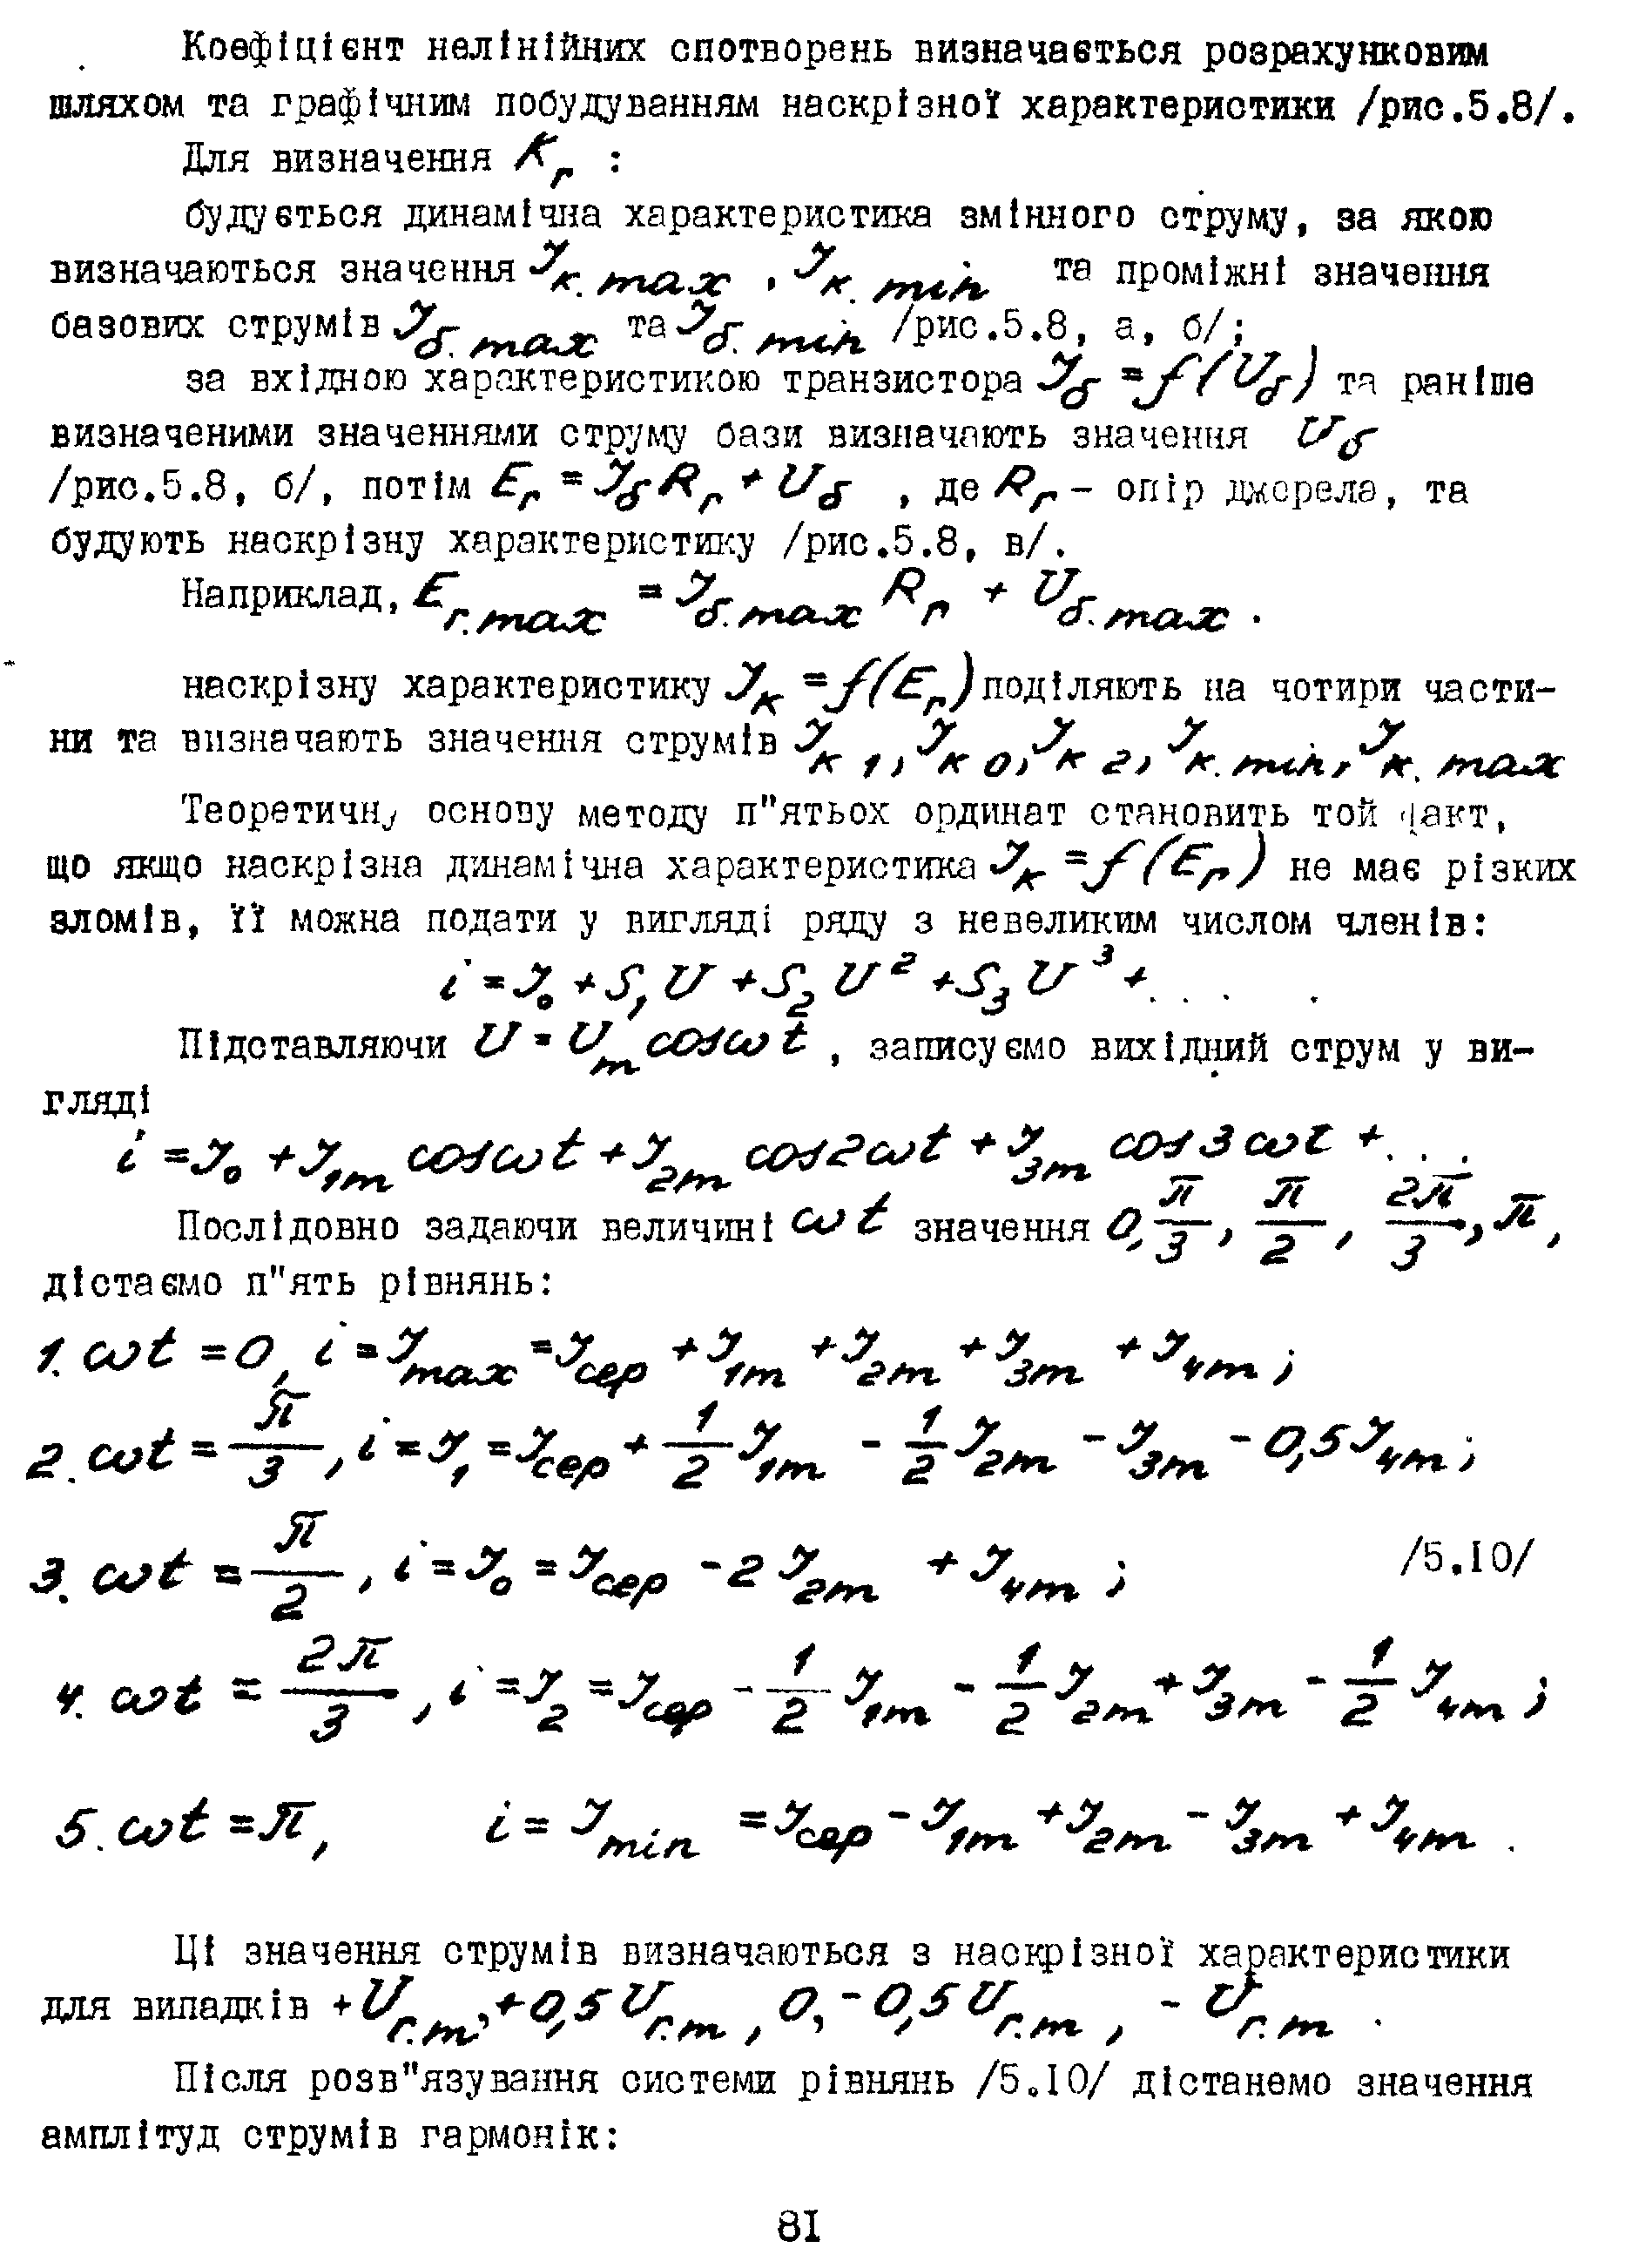 Коефіцієнт нелінійних спотворень визначається розрахунковим
шляхом та графічним побудуванням наскрізної характеристики /рис.5.8/.
Для визначення K_г :
будується динамічна характеристика змінного струму, за якою
визначаються значення I_к.max , I_к.min та проміжні значення
базових струмів I_б.max та I_б.min /рис.5.8, а, б/;
за вхідною характеристикою транзистора I_б = f(U_б) та раніше
визначеними значеннями струму бази визначають значення U_б
/рис.5.8, б/, потім E_г = I_б R_г + U_б , де R_г – опір джерела, та
будують наскрізну характеристику /рис.5.8, в/.
Наприклад, E_г.max = I_б.max R_г + U_б.max .
наскрізну характеристику I_к = f(E_г) поділяють на чотири части-
ни та визначають значення струмів I_к1, I_к0, I_к2, I_к.min, I_к.max
Теоретичну основу методу п"ятьох ординат становить той факт,
що якщо наскрізна динамічна характеристика I_к = f(E_г) не має різких
зломів, її можна подати у вигляді ряду з невеликим числом членів:
i = I_0 + S_1 U + S_2 U² + S_3 U³ + . . .
Підставляючи U = U_m cosωt , записуємо вихідний струм у ви-
гляді
i = I_0 + I_1m cosωt + I_2m cos2ωt + I_3m cos3ωt + . . .
Послідовно задаючи величині ωt значення 0, π/3 , π/2 , 2π/3 , π ,
дістаємо п"ять рівнянь:
1. ωt = 0, i = I_max = I_сер + I_1m + I_2m + I_3m + I_4m ;
2. ωt = π/3 , i = I_1 = I_сер + 1/2 I_1m - 1/2 I_2m - I_3m - 0,5 I_4m ;
3. ωt = π/2 , i = I_0 = I_сер - 2 I_2m + I_4m ; /5.10/
4. ωt = 2π/3 , i = I_2 = I_сер - 1/2 I_1m - 1/2 I_2m + I_3m - 1/2 I_4m ;
5. ωt = π, i = I_min = I_сер - I_1m + I_2m - I_3m + I_4m .
Ці значення струмів визначаються з наскрізної характеристики
для випадків +U_г.m, +0,5 U_г.m , 0, -0,5 U_г.m , - U_г.m .
Після розв"язування системи рівнянь /5.10/ дістанемо значення
амплітуд струмів гармонік:
8I